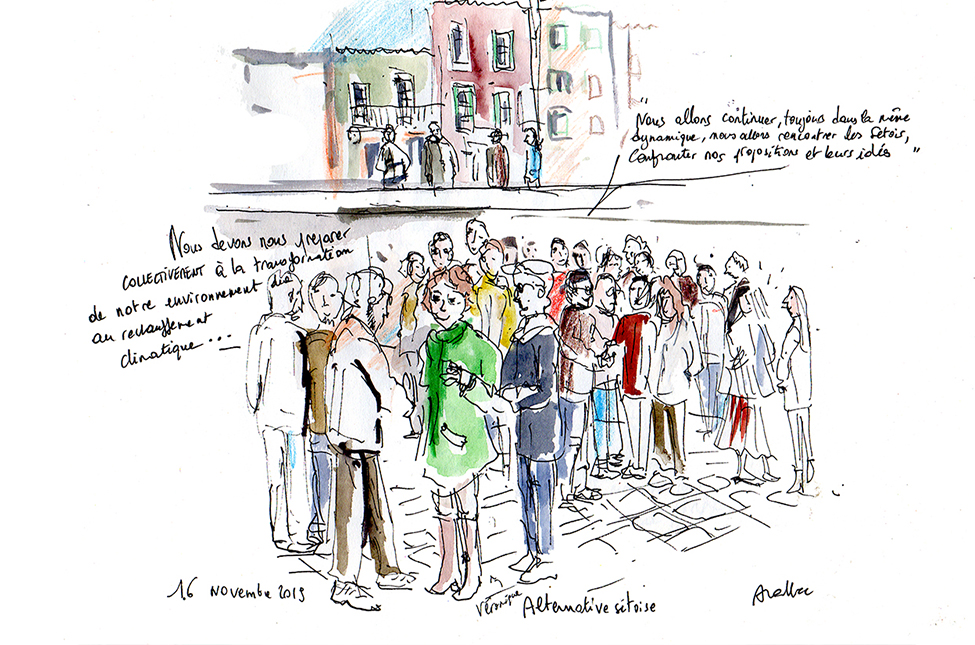 "Nous allons continuer, toujours dans la même
dynamique, nous allons rencontrer les Sétois,
Confronter nos propositions et leurs idées "
Nous devons nous préparer
COLLECTIVEMENT à la transformation
de notre environnement dû
au réchauffement
climatique...
16 novembre 2019
Véronique
Alternative sétoise